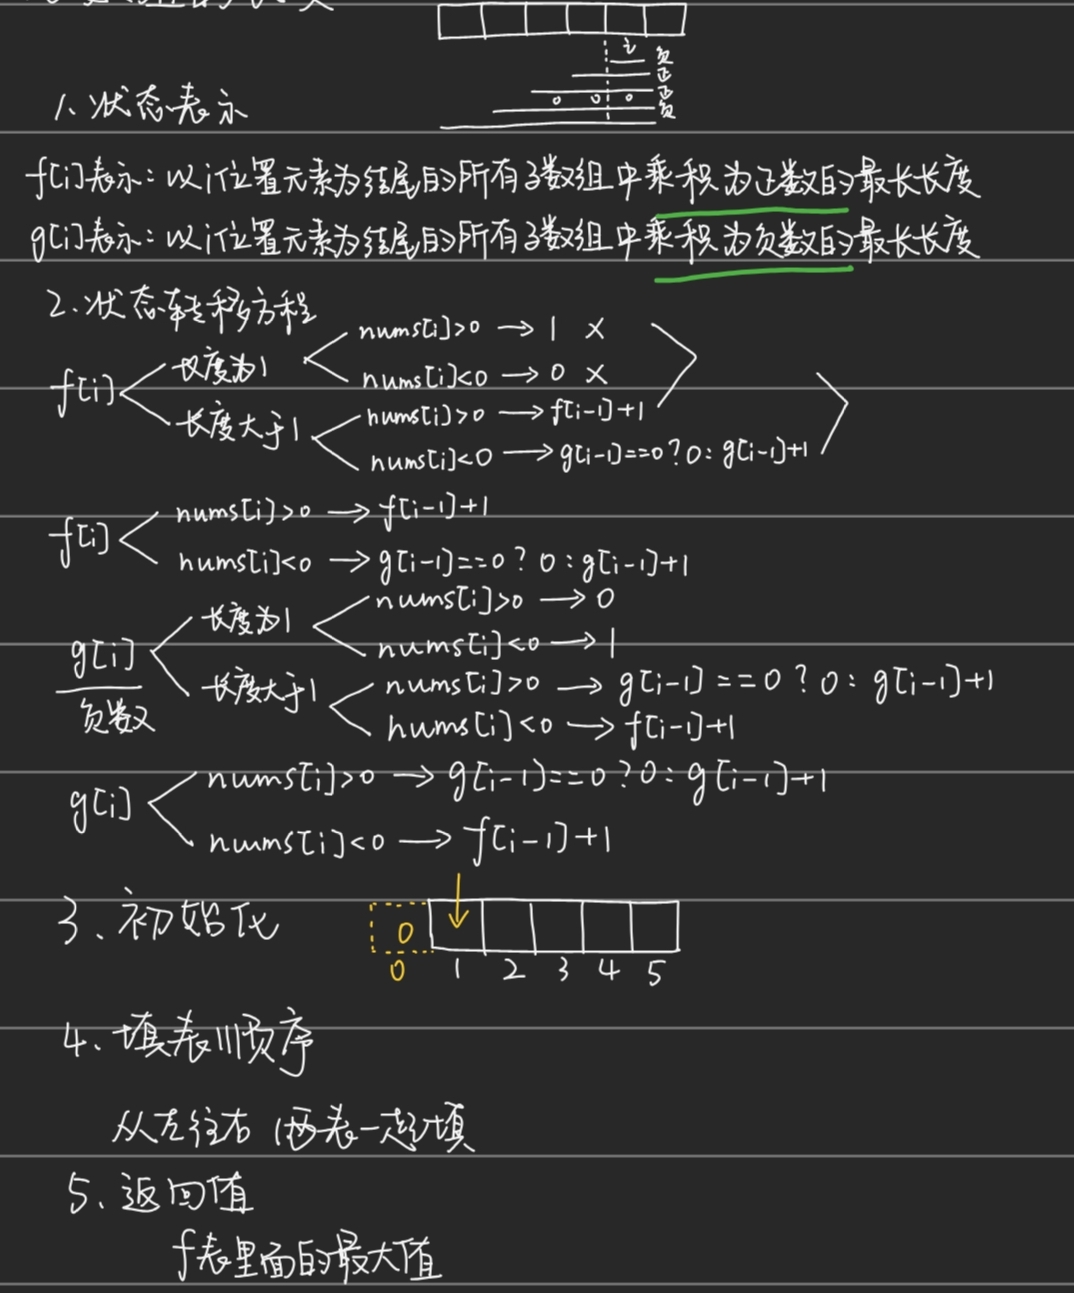 i
负
正
正
负
0 0 0
1. 状态表示
f[i]表示: 以i位置元素为结尾的所有子数组中乘积为正数的最长长度
g[i]表示: 以i位置元素为结尾的所有子数组中乘积为负数的最长长度
2. 状态转移方程
f[i]
长度为1
nums[i]>0 → 1 ×
nums[i]<0 → 0 ×
长度大于1
nums[i]>0 → f[i-1]+1
nums[i]<0 → g[i-1]==0?0:g[i-1]+1
f[i]
nums[i]>0 → f[i-1]+1
nums[i]<0 → g[i-1]==0?0:g[i-1]+1
g[i]
负数
长度为1
nums[i]>0 → 0
nums[i]<0 → 1
长度大于1
nums[i]>0 → g[i-1]==0?0:g[i-1]+1
nums[i]<0 → f[i-1]+1
g[i]
nums[i]>0 → g[i-1)==0?0:g[i-1]+1
nums[i]<0 → f[i-1)+1
3、初始化
0
0 1 2 3 4 5
4、填表顺序
从左往右 两表一起填
5、返回值
f表里面的最大值